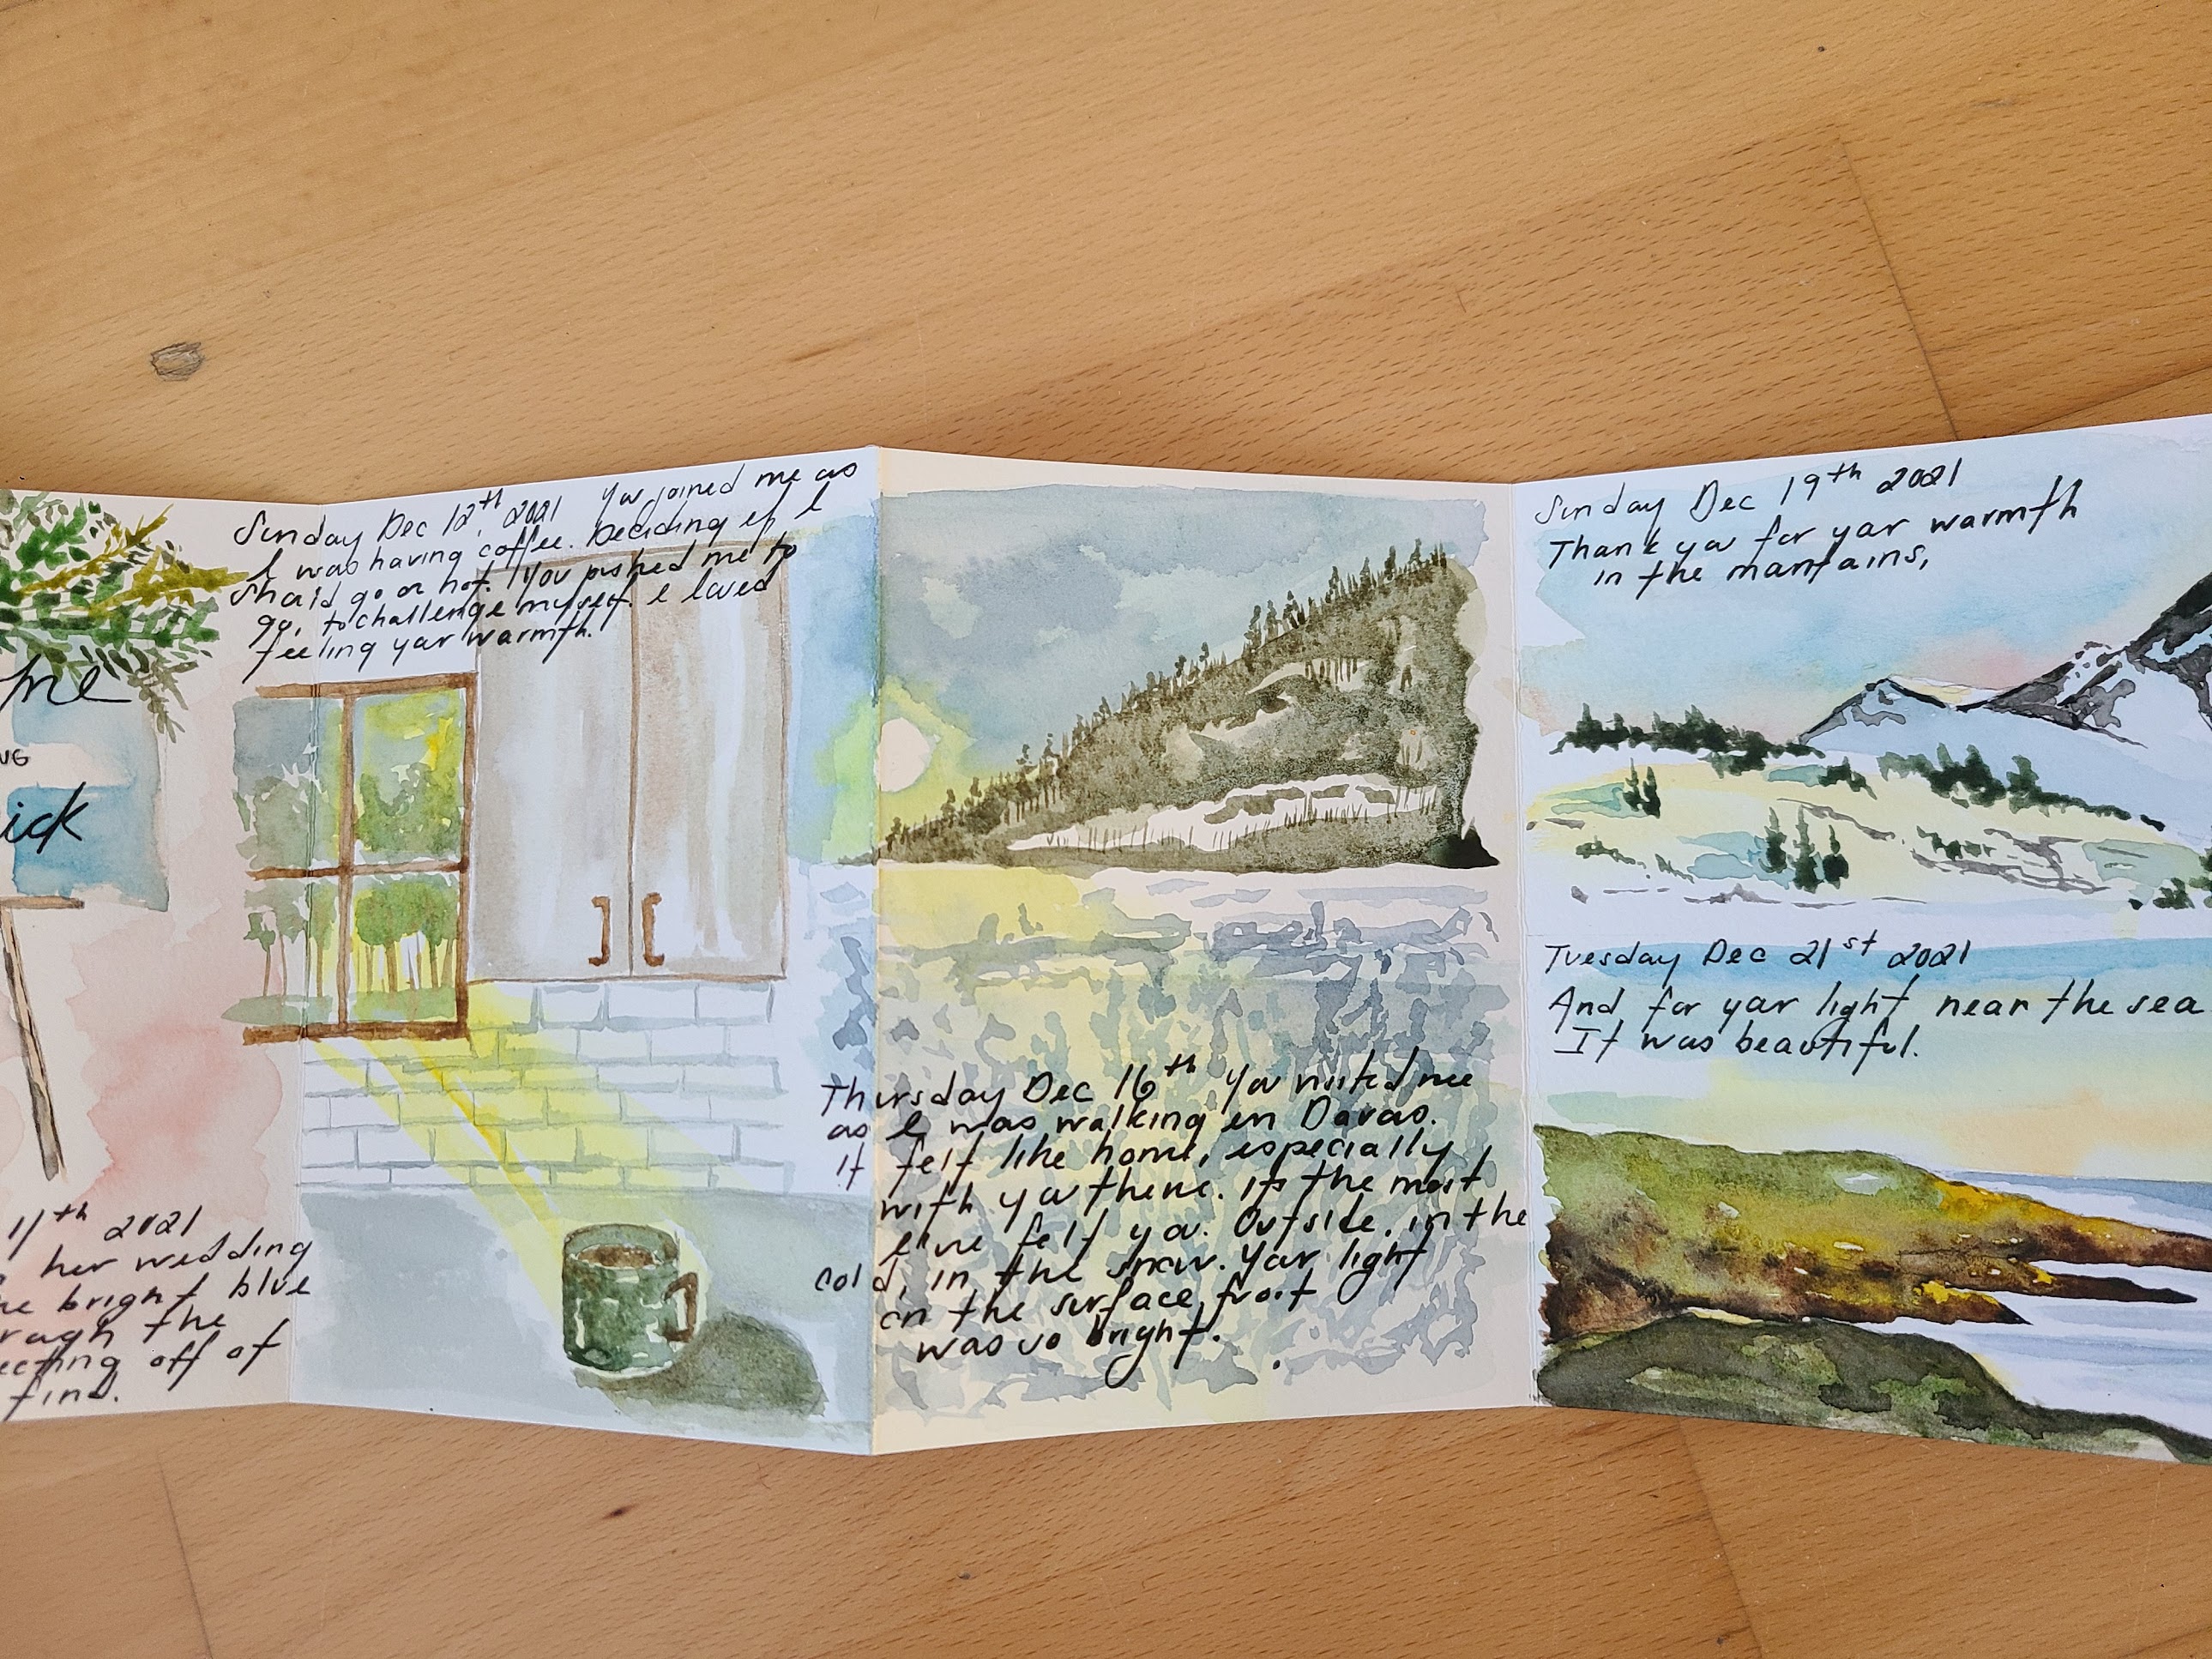 me
UG
ick
11th 2021
her wedding
bright blue
the
off of
find.
Sunday Dec 12th, 2021 You joined me as
I was having coffee. Deciding if I
should go or not. You pushed me to
go, to challenge myself. I loved
feeling your warmth.
Thursday Dec 16th You visited me
as I was walking in Davos.
It felt like home, especially
with you there. Its the most
I've felt you. Outside, in the
cold, in the snow. Your light
on the surface frost
was so bright.
Sunday Dec 19th 2021
Thank you for your warmth
in the mountains,
Tuesday Dec 21st 2021
And for your light near the sea
It was beautiful.